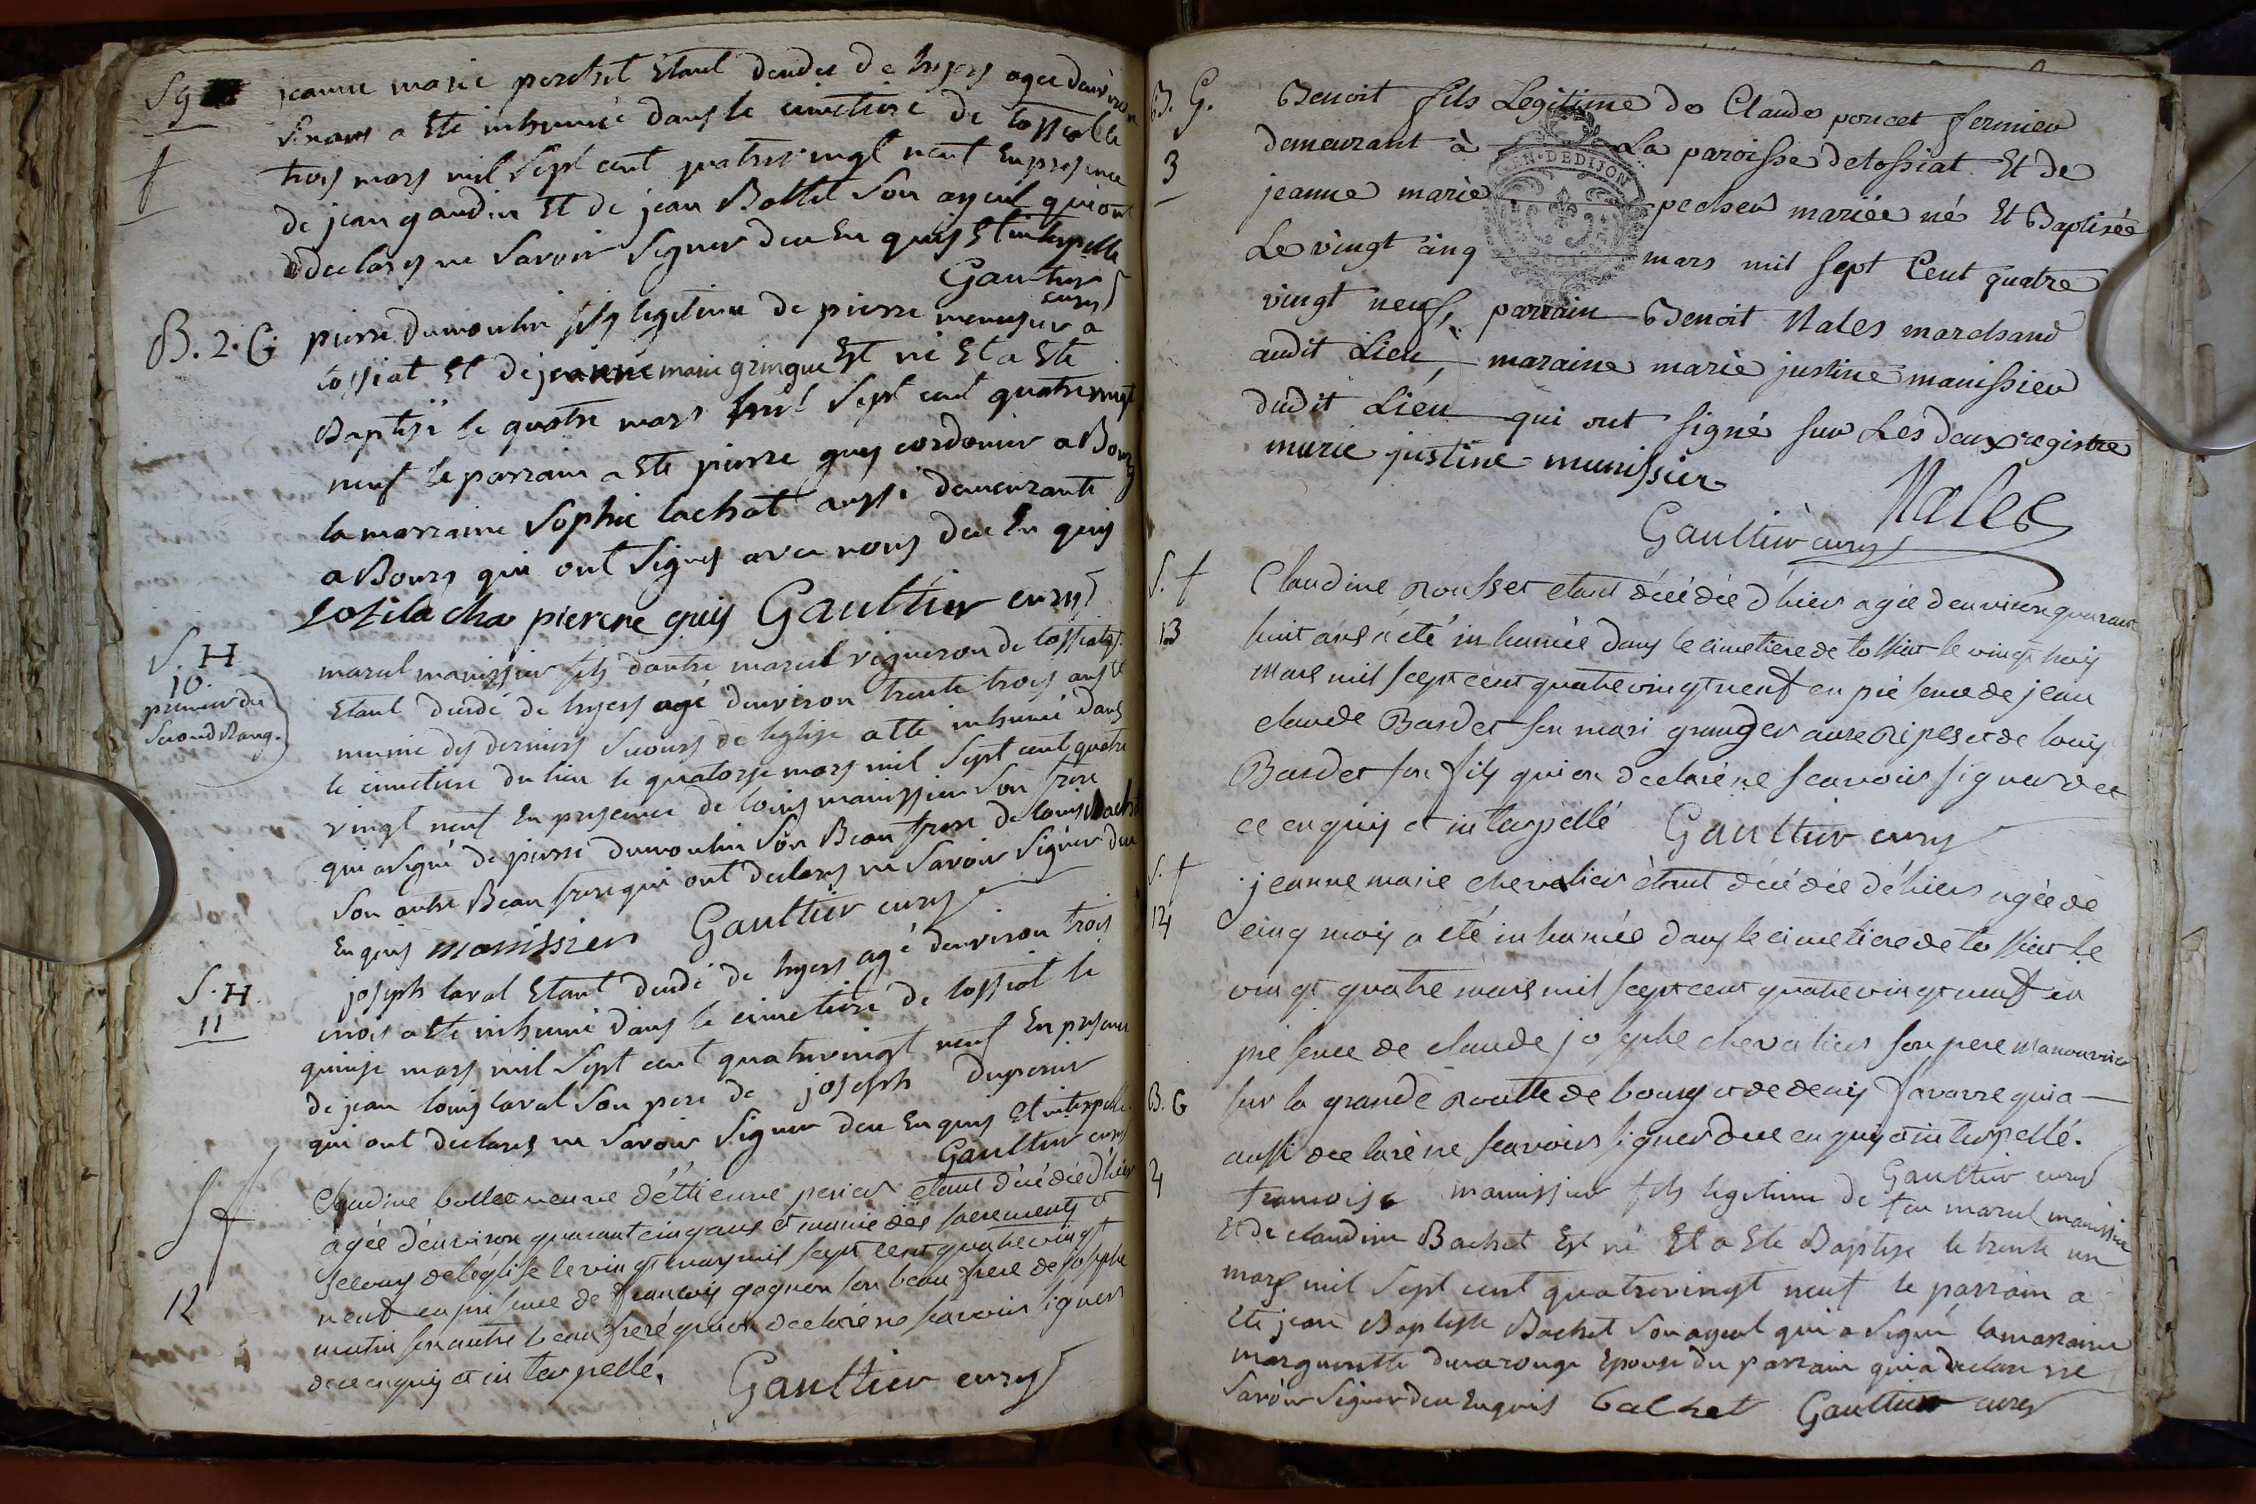 S 9
jeanne marie perchet Etant decedee de hyers agee denviron
six ans a Ete inhumé dans le cimetiere de tossiat le
trois mars mil sept cent quatre vingt neuf En presence
f
de jean gaudin Et de jean Bollet son ayeul qui ont
declarés ne savoir signer deu En quis Et interpelle
Gaultier curé
B. 2. G
pierre dumoulin fils legitime de pierre menusier a
tossiat Et de jeanne marie gringue Est né Et a Ete
Baptisé le quatre mars mil sept cent quatrevingt
neuf le parrain a Ete pierre guy cordonier a Bourg
la marraine sophie lachat aussi demeurante
a Bourg qui ont signes avec nous deu En quis
sofi la cha pierere guiy Gaultier curé
S. H
10
premier du
second Rang.
marcel manissier fils dautre marcel vigneron de tossiat
Etant decede de hyers agé denviron trente trois ans Et
munie des derniers secours de leglise a Ete inhumé dans
le cimetiere du lieu le quatorze mars mil sept cent quatre
vingt neuf En presence de louis manissier son frere
qui a signé de pierre dumoulin son Beau frere de louis Bachet
son autre Beau frere qui ont declarés ne savoir signer deu
En quis manissier Gaultier curé
S. H.
11
joseph laval Etant decede de hyers agé denviron trois
mois a Ete inhumé dans le cimetiere de tossiat le
quinze mars mil sept cent quatrevingt neuf En presence
de jean louis laval son pere de joseph duperier
qui ont declarés ne savoir signer deu En quis Et interpelle
Gaultier curé
S f
12
Claudine bollet veuve d'éttienne perier etant décédée d'hier
agée d'environ quarant cinq ans et munie des sacrements et
secours de léglise le vingt mars mil sept cent quatre vingt
neuf en présence de francois gagnon son beau frere de joseph
mutin son autre beau frere qui ont declaré ne scavoir signer
de ce enquis et interpellé.
Gaultier curé
B. G.
3
Benoit fils Legitime de Claude poncet fermier
demeurant à La paroisse de tossiat Et de
jeanne marie pecheu mariée né Et Baptisée
Le vingt cinq mars mil sept Cent quatre
vingt neuf, parrain Benoit Nales marchand
audit Lieu, maraine marie justine manissieu
dudit Lieu qui ont signé sur Les deux registre
marie justine munissier
Nales
Gaultier curé
S. f
13
Claudine Rousset etant décédée d'hier agée denviron quarant
huit ans a été inhumée dans le cimetiere de tossiat le vingt trois
mars mil sept cent quatre vingt neuf en présence de jean
claude Bardet son mari granger aux Ripes et de louis
Bardet son fils qui on declaré ne scavoir signer de
ce enquis et interpellé Gaultier curé
S. f
14
jeanne marie chevalier étant décédée d'hier agée de
cinq mois a été inhumée dans le cimetiere de tossiat le
vingt quatre mars mil sept cent quatre vingt neuf en
présence de claude josephe chevalier son pere manouvrier
sur la grande Routte de bourg et de denis favarre qui a
aussi declaré ne scavoir signer de ce enquis et interpellé.
Gaultier curé
B. G
4
francois manissier fils legitime de feu marcel manissier
Et de claudine Bachet Est né Et a Ete Baptise le trente un
mars mil sept cent quatrevingt neuf le parrain a
Ete jean Baptiste Bachet son ayeul qui a signé la marraine
margueritte durarouge Epouse du parrain qui a declaré ne
savoir signer deu Enquis bachet Gaultier curé